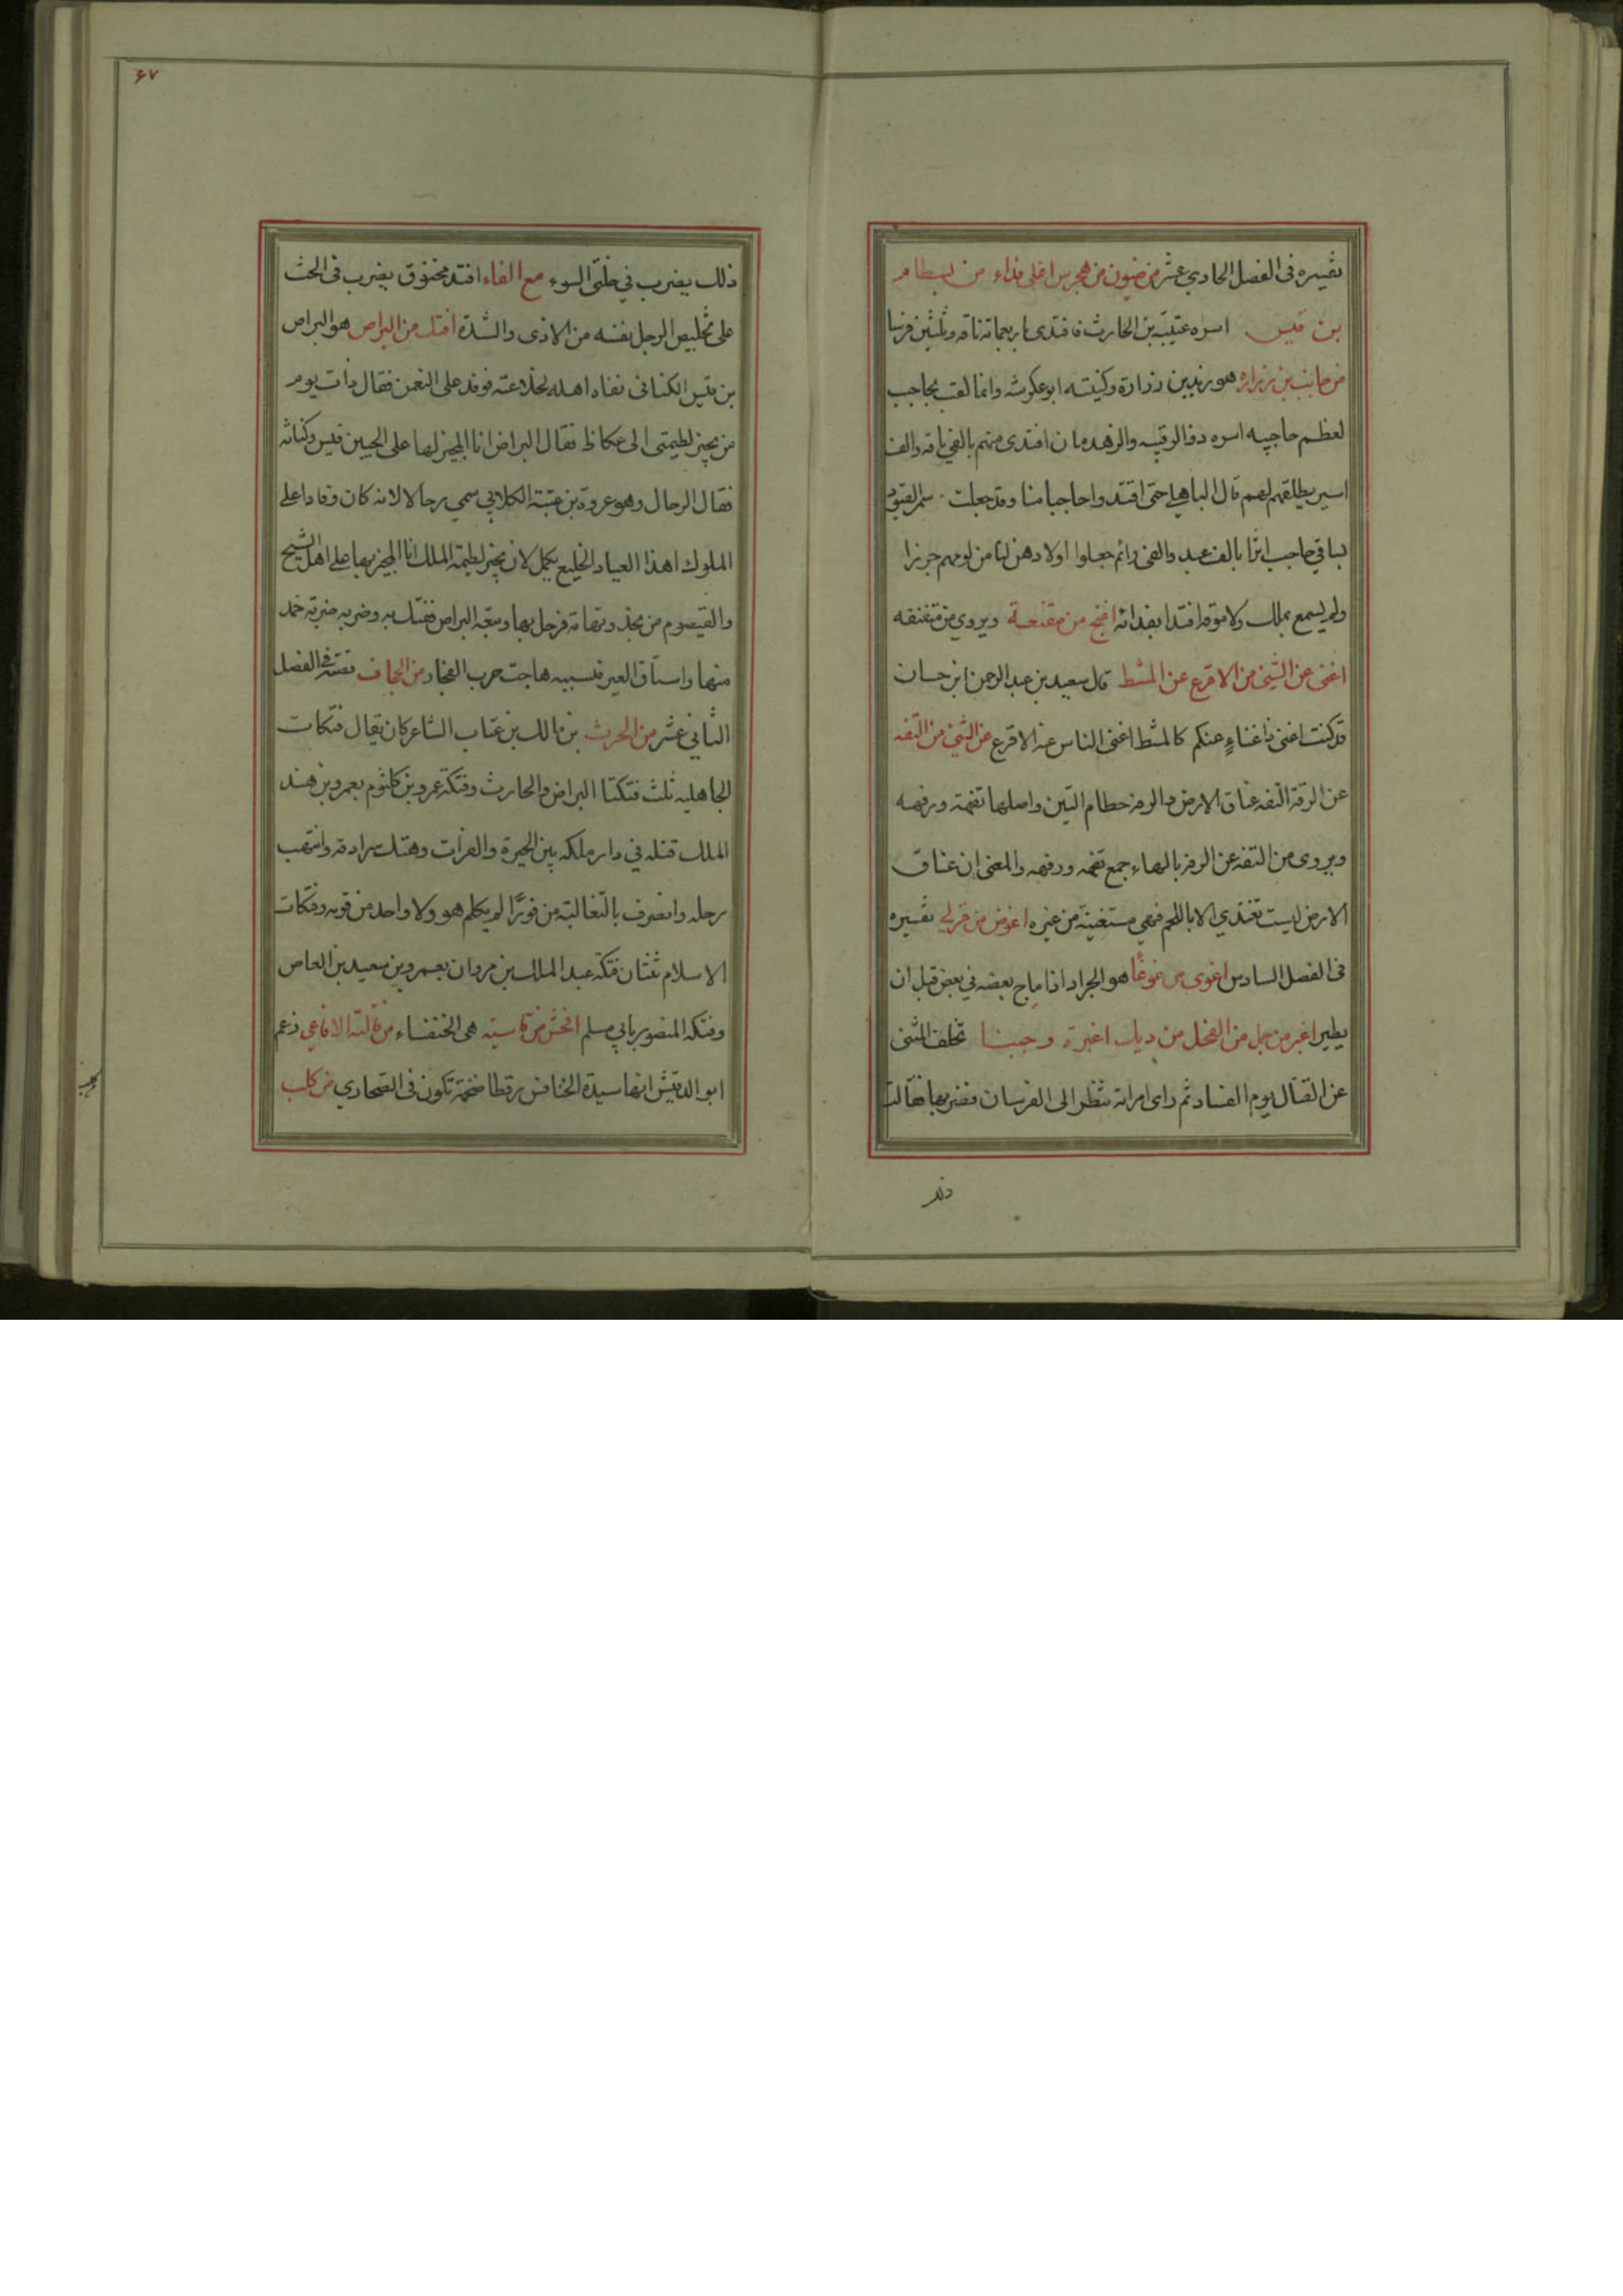 تفسيره فى الفصل الحادي عشر من ضيون من هجرس اغلى فداء من بسطام
بن قيس اسره عتيبة بن الحارث فافتدى باربعمائة ناقة وثلثين فرسا
من حاجب بن زراره هو زيد بن زرارة وكنيته ابو عكرشه وانما لقب بحاجب
لعظم حاجبيه اسره ذو الرقيبه والزهدمان افتدى منهم بالفي ناقه والف
اسير يطلقهم لهم قال الباهلي حتى افتدوا حاجبا منا وقد جعلت سمر القيود
بساقي حاجب اثرا بالف عبد والفى رائم جعلوا اولادهن لنا من لومهم جزرا
ولم يسمع بملك ولا سوقه افتدا بفدائه افتح من مقنعة ويروي من متفنقه
اغنى عن الشيئ من الاقرع عن المشط قال سعيد بن عبد الرحمن ابن حسان
قد كنت اغنى ذا غناءٍ عنكم كالمشط اغنى الناس عنه الاقرع عن الشيئ من التفه
عن الرفة التفه عناق الارض والرفه حطام التين واصلها تفهة ورفهه
ويروى من التفه عن الرفه بالهاء جمع تفهه ورفهه والمعنى ان عناق
الارض ليست تغتذي الا باللحم فهي مستغنية من غيره اغوض من قرلى تفسيره
فى الفصل السادس اغوى من غوغا هو الجراد اذا ماج بعضه في بعض قبل ان
يطير اغير من جمل من الفحل من ديك اغيرة وجبنا تخلف المثنى
عن القتال يوم الفساد ثم راى امراته تنظر الى الفرسان فضربها فقالت
ذلك يضرب في خلتى السوء مع الفاء افتد مخنوق يضرب فى الحث
على تخليص الرجل نفسه من الاذى والشدة افتك من البراض هو البراض
بن قيس الكنانى نفاه اهله لخلاعته فوفد على النعمن فقال ذات يوم
من يجيز لطيمتى الى عكاظ فقال البراض انا المجيز لها على الحيين قيس وكنانه
فقال الرحال وهو عروة بن عتبة الكلابي سمي رحالا لانه كان وفادا على
الملوك اهذا العيار الخليع يكمل لان يجيز لطيمة الملك انا المجيز بها على اهل الشيح
والقيصوم من نجد وتهامة فرحل بها وتبعه البراض ففتك به وضربه ضربة خمد
منها واستاق العير فبسببه هاجت حرب الفجار من الجحاف قصته فى الفصل
الثانى عشر من الحرث بن مالك بن عتاب الشاعر كان يقال فتكات
الجاهليه ثلث فتكتا البراض والحارث وفتكة عمرو بن كلثوم بعمرو بن هند
الملك قتله في دار ملكه بين الحيرة والفرات وهتك سرادقه وانتهب
رحله وانصرف بالتغالبة من فورًا لم يكلم هو ولا واحد من قومه وفتكات
الاسلام ثنتان فتكة عبد الملك بن مروان بعمرو بن سعيد بن العاص
وفتكة المنصور بابي مسلم افحش من فاسيه هى الخنفساء من فالية الافاعي زعم
ابو الدقيش انها سيدة الخنافس رقطا ضخمة تكون فى الصحاري من كلب
ذلك
۶۷